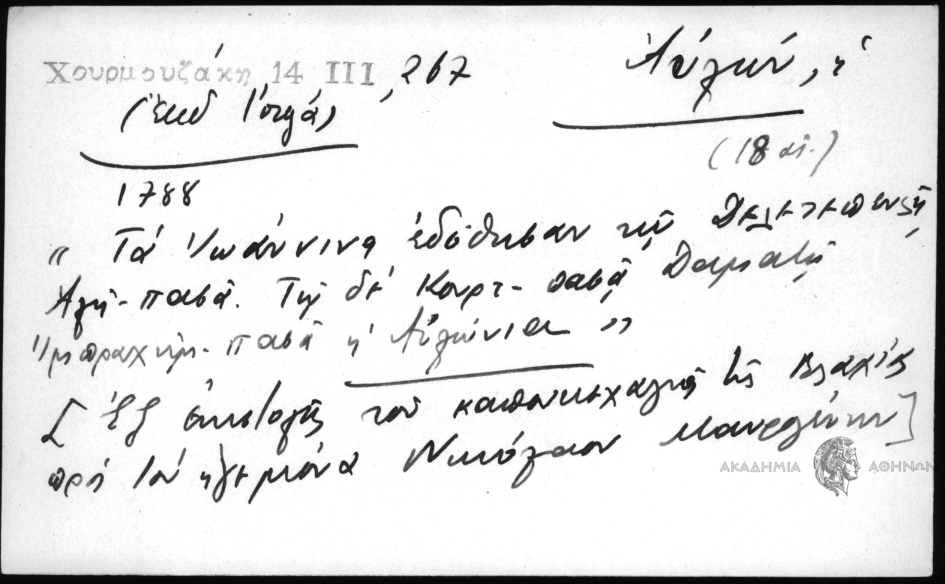 Χουρμουζάκη 14 III, 267
Αὐλών, ἡ
(ἔκδ Ἰόργα)
(18 αἰ.)
1788
" Τὰ Ἰωάννινα ἐδόθησαν τῷ Δελτεπενζῆ
Ἀλῆ-πασᾶ. Τῷ δὲ Κουρτ-πασᾶ Δαματῇ
Ἰμπραχήμ-πασᾶ ἡ Αὐλώνια "
[ Ἐξ ἐπιστολῆς τοῦ καπουκεχαγιᾶ τῆς Βλαχίας
πρὸς τὸν ἡγεμόνα Νικόλαον Μαυρογένην]
ΑΚΑΔΗΜΙΑ ΑΘΗΝΩΝ